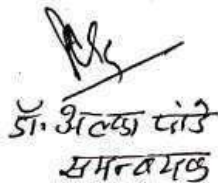 डॉ. अल्का पांडे
समन्वयक